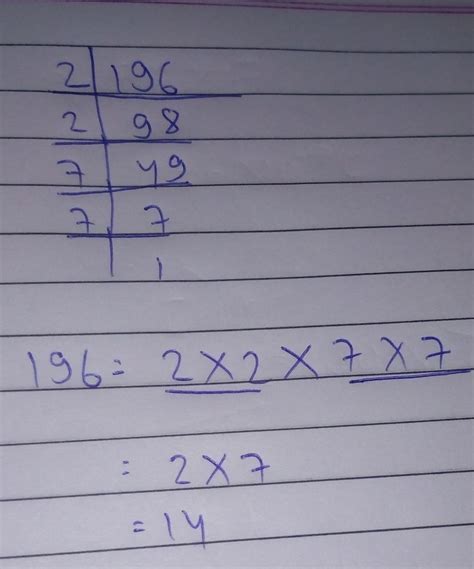 2 | 196
2 | 98
7 | 49
7 | 7
| 1
196 = 2 × 2 × 7 × 7
= 2 × 7
= 14